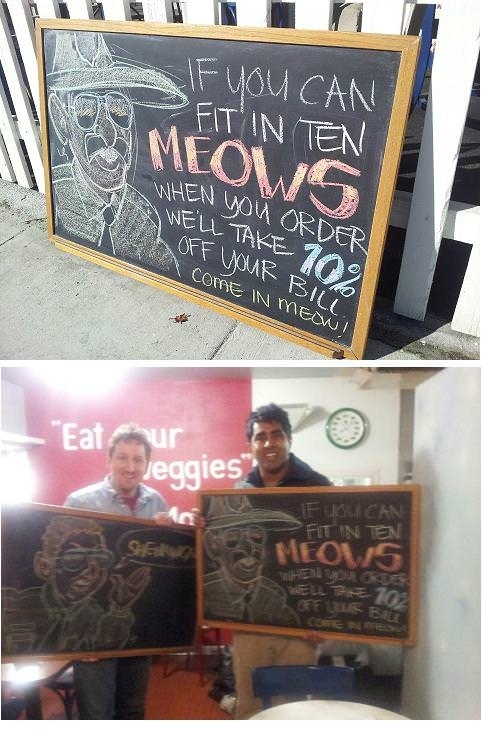 IF YOU CAN
FIT IN TEN
MEOWS
WHEN YOU ORDER
WE'LL TAKE 10%
OFF YOUR BILL
COME IN MEOW!
"Eat your
veggies"
IF YOU CAN
FIT IN TEN
MEOWS
WHEN YOU ORDER
WE'LL TAKE 10%
OFF YOUR BILL
COME IN MEOW!